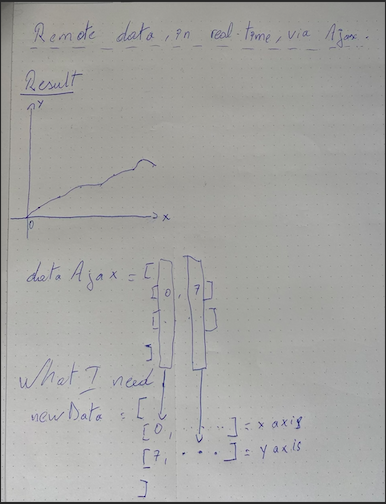 Remote data, in real-time, via Ajax.
Result
Y
0
x
dataAjax = [
[0, 7]
[. .]
]
What I need
newData = [
[0, ......] = x axis
[7, ...] = y axis
]